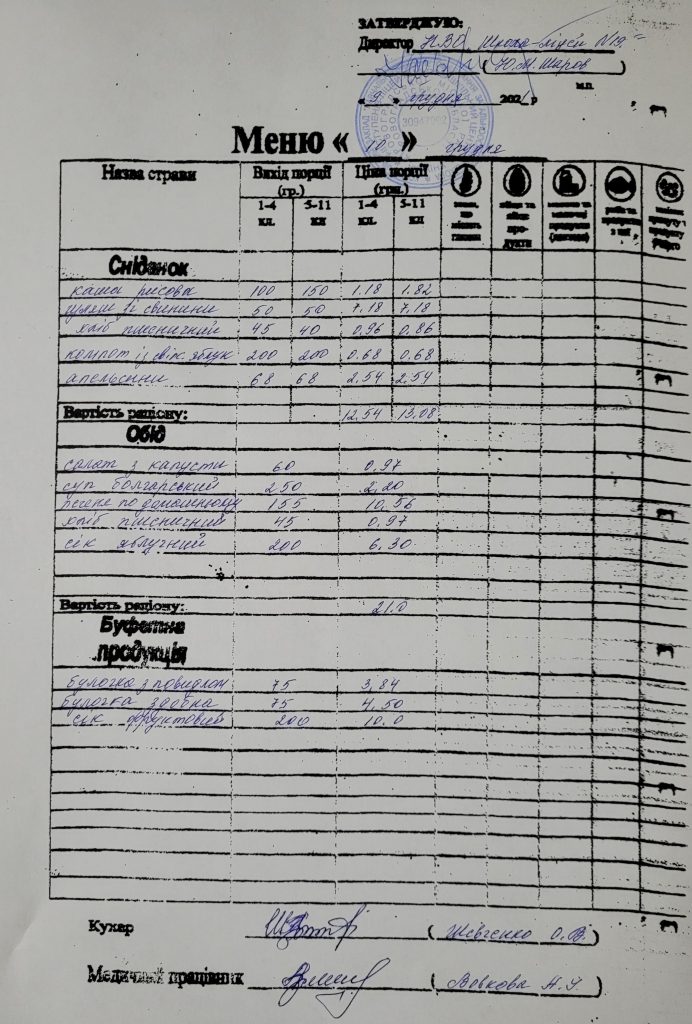 ЗАТВЕРДЖУЮ:
Директор НВО "Школа-ліцей №19"
(Ю.М. Шаров)
м.п.
« 9 » грудня 2021 р
30947992
Меню « 10 » грудня
Назва страви Вихід порції (гр.) Ціна порції (грн.)
1-4 кл. 5-11 кл 1-4 кл. 5-11 кл
Сніданок
каша рисова 100 150 1.18 1.82
гуляш зі свинини 50 50 7.18 7.18
хліб пшеничний 45 40 0.96 0.86
компот із свіж. яблук 200 200 0.68 0.68
апельсини 68 68 2.54 2.54
Вартість раціону: 12.54 13.08
Обід
салат з капусти 60 0.97
суп болгарський 250 2,20
печеня по домашньому 155 10,56
хліб пшеничний 45 0.97
сік яблучний 200 6,30
Вартість раціону: 21.0
Буфетна
продукція
булочка з повидлом 75 3,84
булочка здобна 75 4.50
сік фруктовий 200 10.0
Кухар (Шевченко О.В.)
Медичний працівник (Вовкова А.)